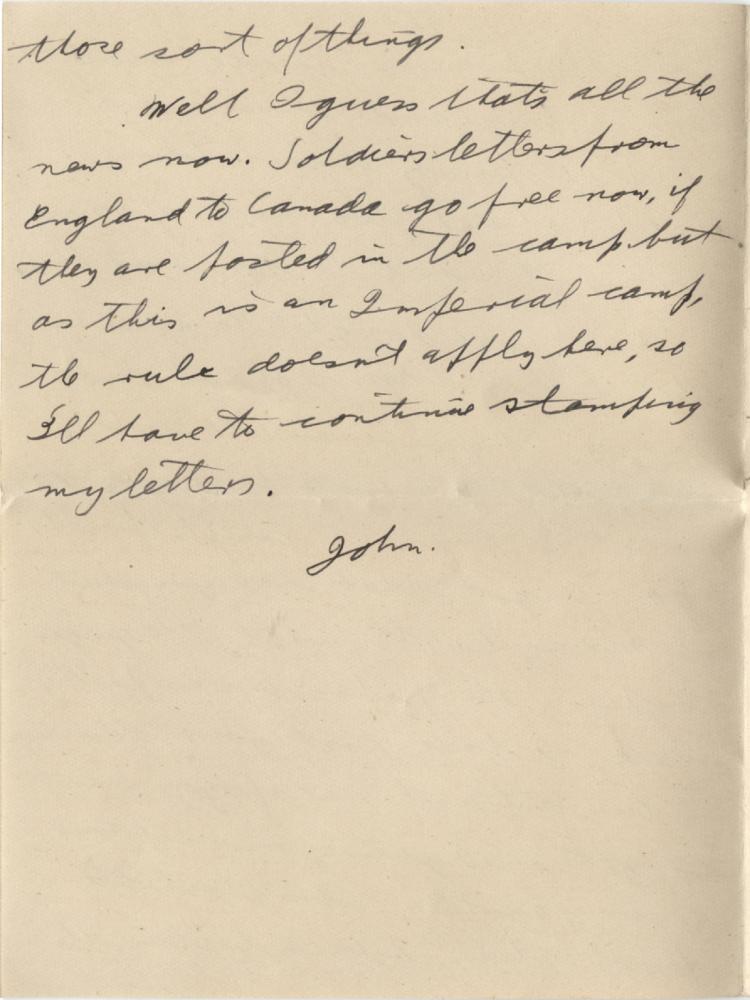 those sort of things.
Well I guess thats all the
news now. Soldiers letters from
England to Canada go free now, if
they are posted in the camp. but
as this is an Imperial camp,
the rule doesn't apply here, so
I'll have to continue stamping
my letters.
John.